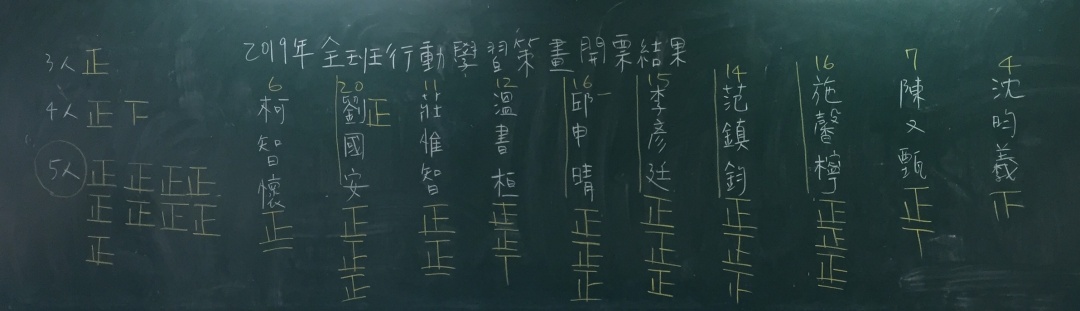 2019年全班行動學習策畫開票結果
3人 正
4人 正下
5人 正正正正
正正正正
正
6 柯智懷 正一
20 劉國安 正正正正
11 莊惟智 正正一
12 溫書桓 正正丅
16 邱申晴 正正正一
15 李彥廷 正正正
14 范鎮鈞 正正
16 施馨檸 正正正一
7 陳又甄 正丅
4 沈昀義